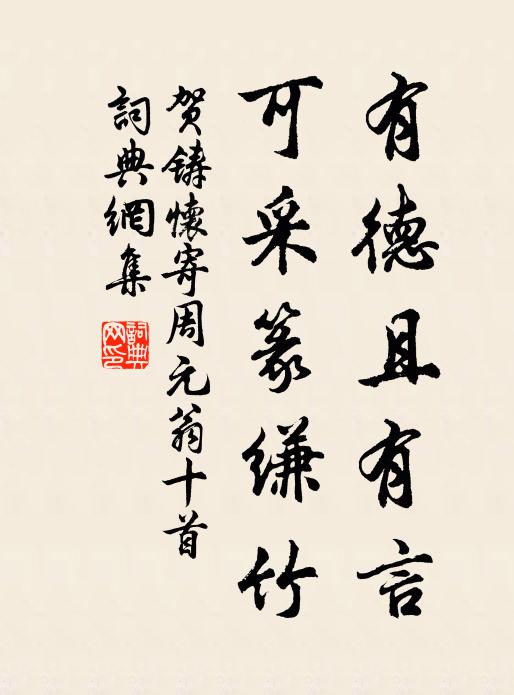 有德且有言
可采篆缣竹
贺鑄懷寄周元翁十首
詞典網集
詞典
网印